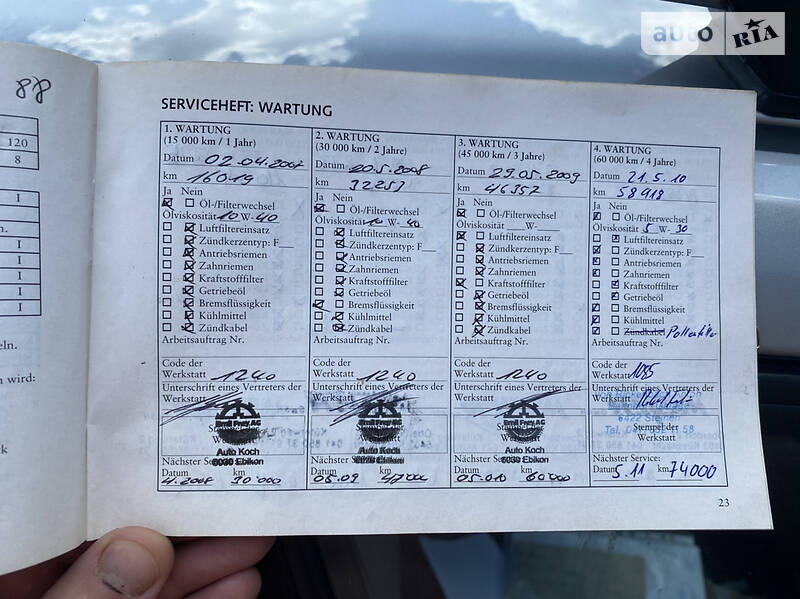 auto RIA
88
120
8
I
I
I
I
I
I
eln.
n wird:
SERVICEHEFT: WARTUNG
1. WARTUNG
(15 000 km / 1 Jahr)
Datum 02.04.2007
km 16019
Ja Nein
Öl-/Filterwechsel
Ölviskosität 10 W- 40
Luftfiltereinsatz
Zündkerzentyp: F__
Antriebsriemen
Zahnriemen
Kraftstofffilter
Getriebeöl
Bremsflüssigkeit
Kühlmittel
Zündkabel
Arbeitsauftrag Nr.
Code der
Werkstatt 1240
Unterschrift eines Vertreters der
Werkstatt
Emil Frey AG
Werkstatt
Auto Koch
6030 Ebikon
Nächster Service:
Datum km
4.2008 30'000
2. WARTUNG
(30 000 km / 2 Jahre)
Datum 20.5.2008
km 32253
Ja Nein
Öl-/Filterwechsel
Ölviskosität 10 W- 40
Luftfiltereinsatz
Zündkerzentyp: F__
Antriebsriemen
Zahnriemen
Kraftstofffilter
Getriebeöl
Bremsflüssigkeit
Kühlmittel
Zündkabel
Arbeitsauftrag Nr.
Code der
Werkstatt 1240
Unterschrift eines Vertreters der
Werkstatt
Emil Frey AG
Werkstatt
Auto Koch
Nächster Service:
Datum km
05.09 47000
3. WARTUNG
(45 000 km / 3 Jahre)
Datum 29.05.2009
km 46357
Ja Nein
Öl-/Filterwechsel
Ölviskosität __W-__
Luftfiltereinsatz
Zündkerzentyp: F__
Antriebsriemen
Zahnriemen
Kraftstofffilter
Getriebeöl
Bremsflüssigkeit
Kühlmittel
Zündkabel
Arbeitsauftrag Nr.
Code der
Werkstatt 1240
Unterschrift eines Vertreters der
Werkstatt
Emil Frey AG
Werkstatt
Auto Koch
6030 Ebikon
Nächster Service:
Datum km
05.010 60000
4. WARTUNG
(60 000 km / 4 Jahre)
Datum 21.5.10
km 58918
Ja Nein
Öl-/Filterwechsel
Ölviskosität 5 W- 30
Luftfiltereinsatz
Zündkerzentyp: F__
Antriebsriemen
Zahnriemen
Kraftstofffilter
Getriebeöl
Bremsflüssigkeit
Kühlmittel
Zündkabel
Arbeitsauftrag Nr.
Code der
Werkstatt 1085
Unterschrift eines Vertreters der
Werkstatt
6422 Steinen
Stempel der
Werkstatt
Nächster Service:
Datum km
5.11 74000
23